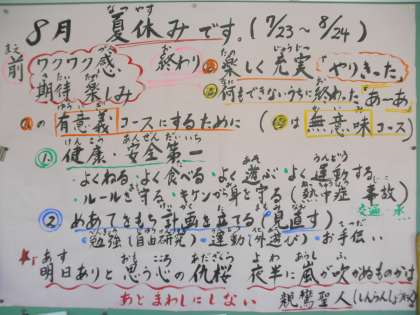 8月 夏休みです。(7/23～8/24)
前 ワクワク感 期待 楽しみ
終わり
楽しく 充実 やりきった。
何もできないうちに終わった。あーあ
の 有意義コースにするために (は 無意味コース)
1 健康・安全第一
・よくねる・よく食べる・よく遊ぶ・よく運動する
・ルールを守る・キケンから身を守る(熱中症 事故)
交通 水
2 めあてをもち計画を立てる(見直す)
・勉強(自由研究)・運動(外遊び)・お手伝い
明日ありと思う心の仇桜 夜半に嵐が吹かぬものかは
あとまわしにしない 親鸞聖人(しんらんしょうにん)